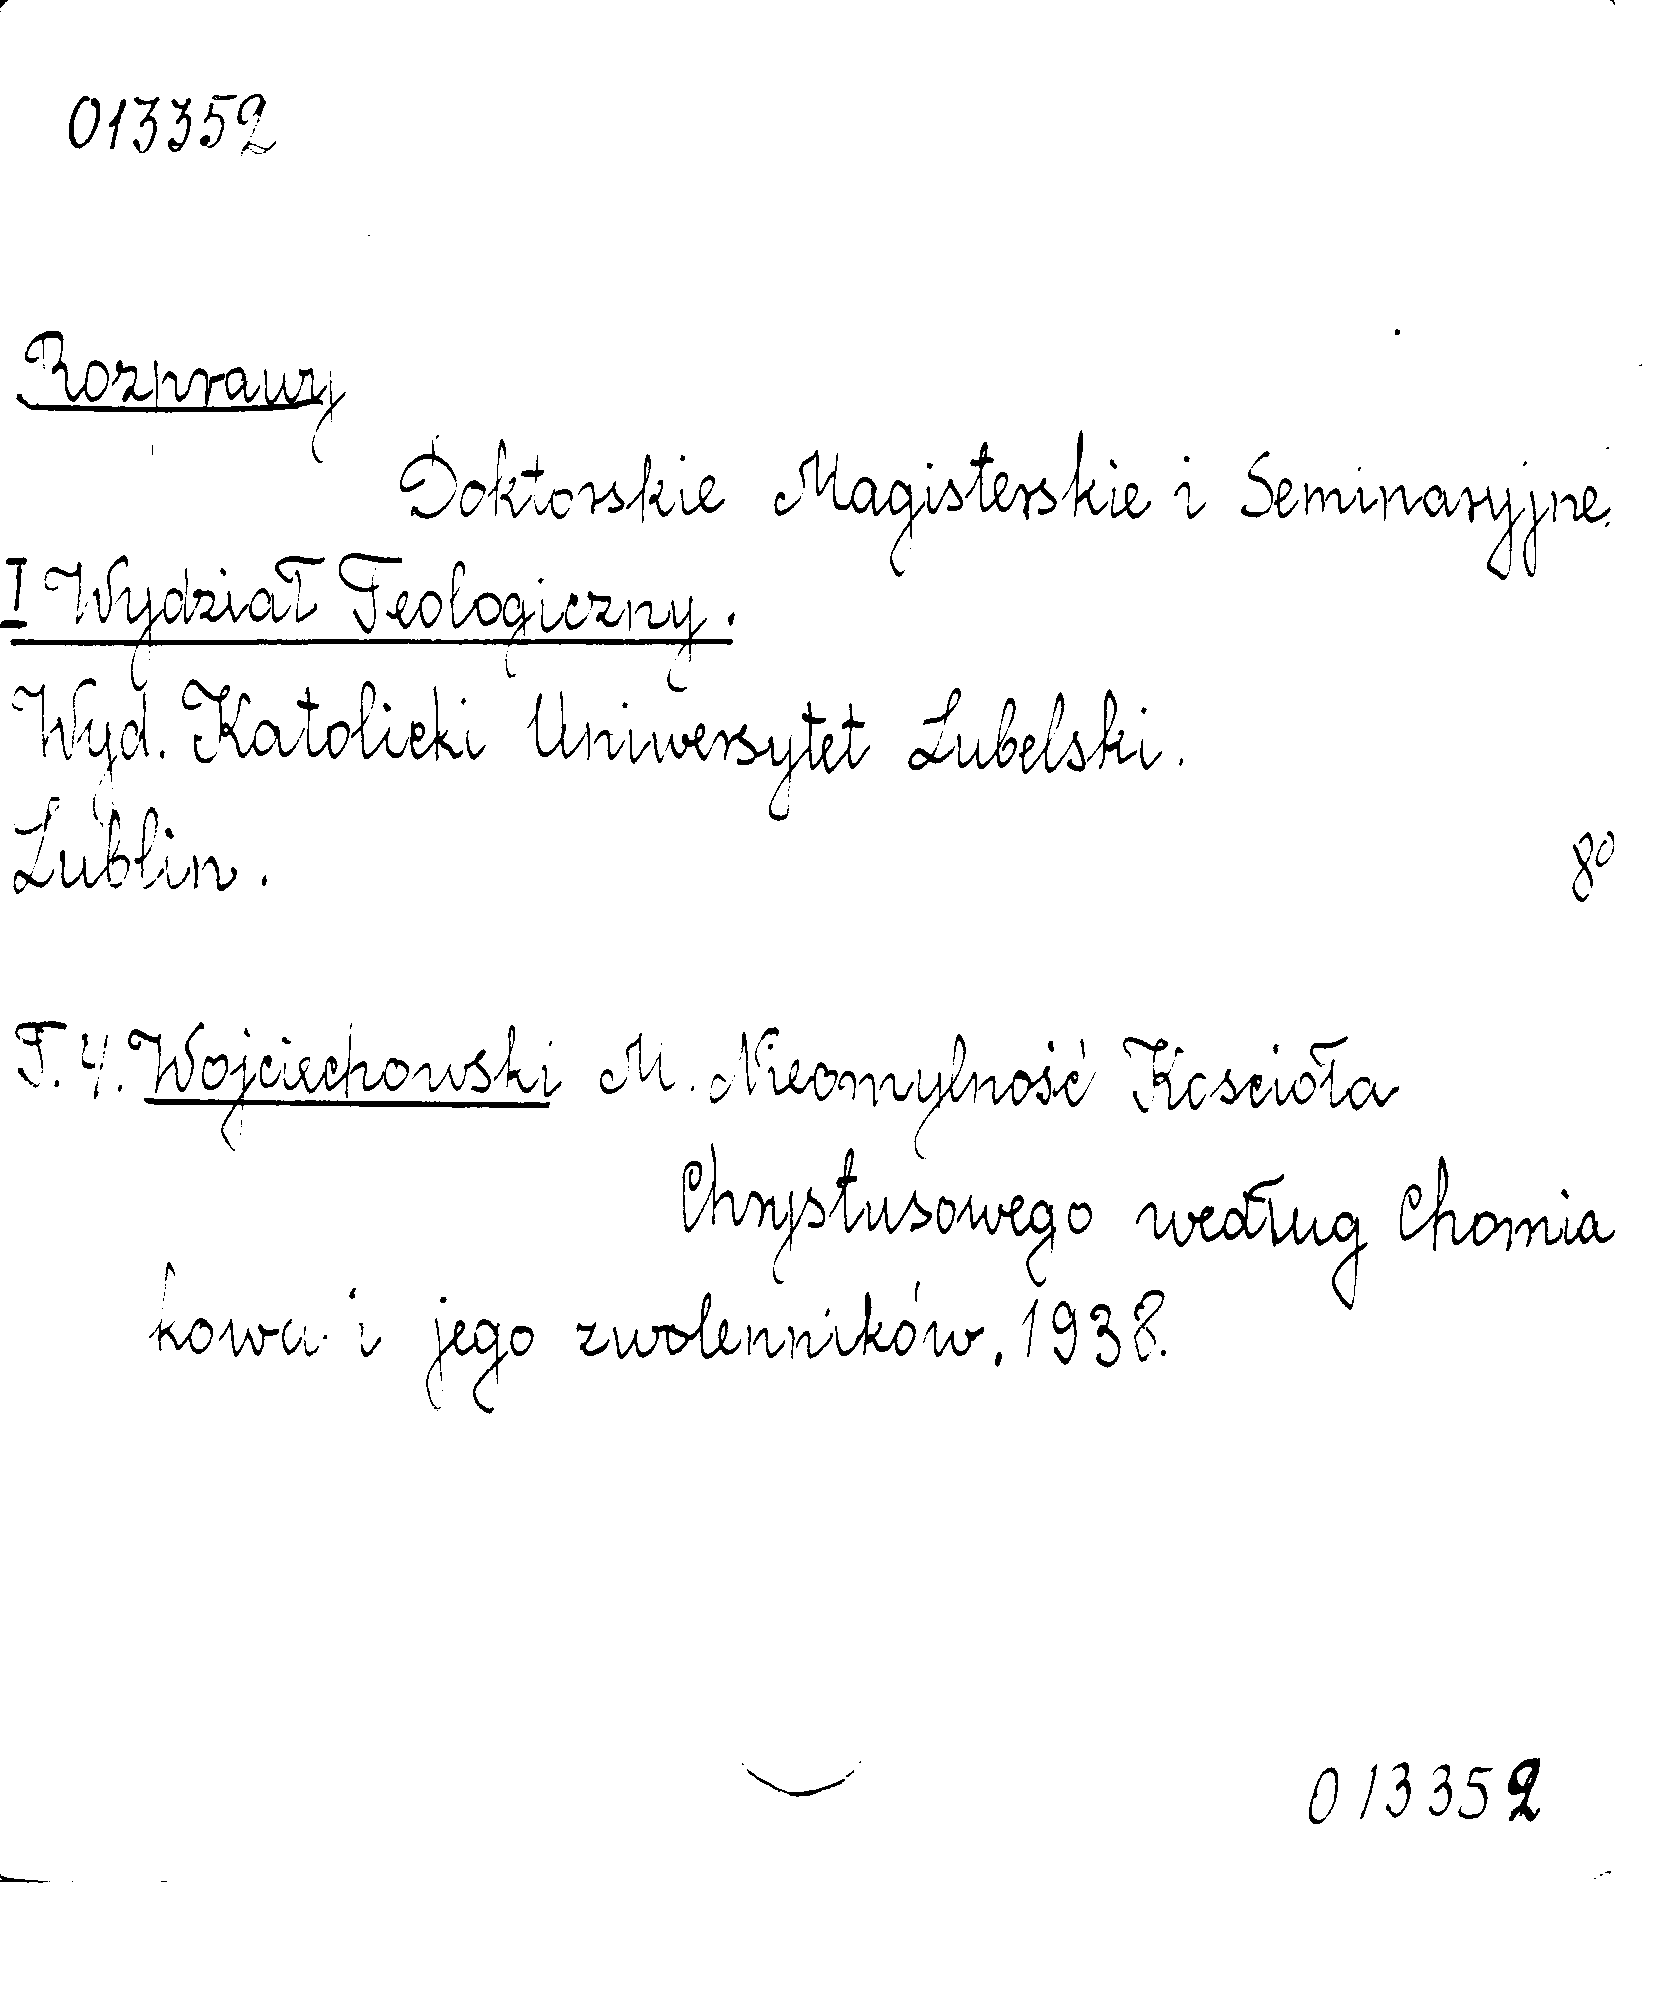 013352
Rozprawy
Doktorskie Magisterskie i Seminaryjne.
I Wydział Teologiczny.
Wyd. Katolicki Uniwersytet Lubelski.
Lublin. 8°
T.4. Wojciechowski M. Nieomylność Koscioła
Chrystusowego według Chomia
kowa i jego zwolenników. 1938.
013352